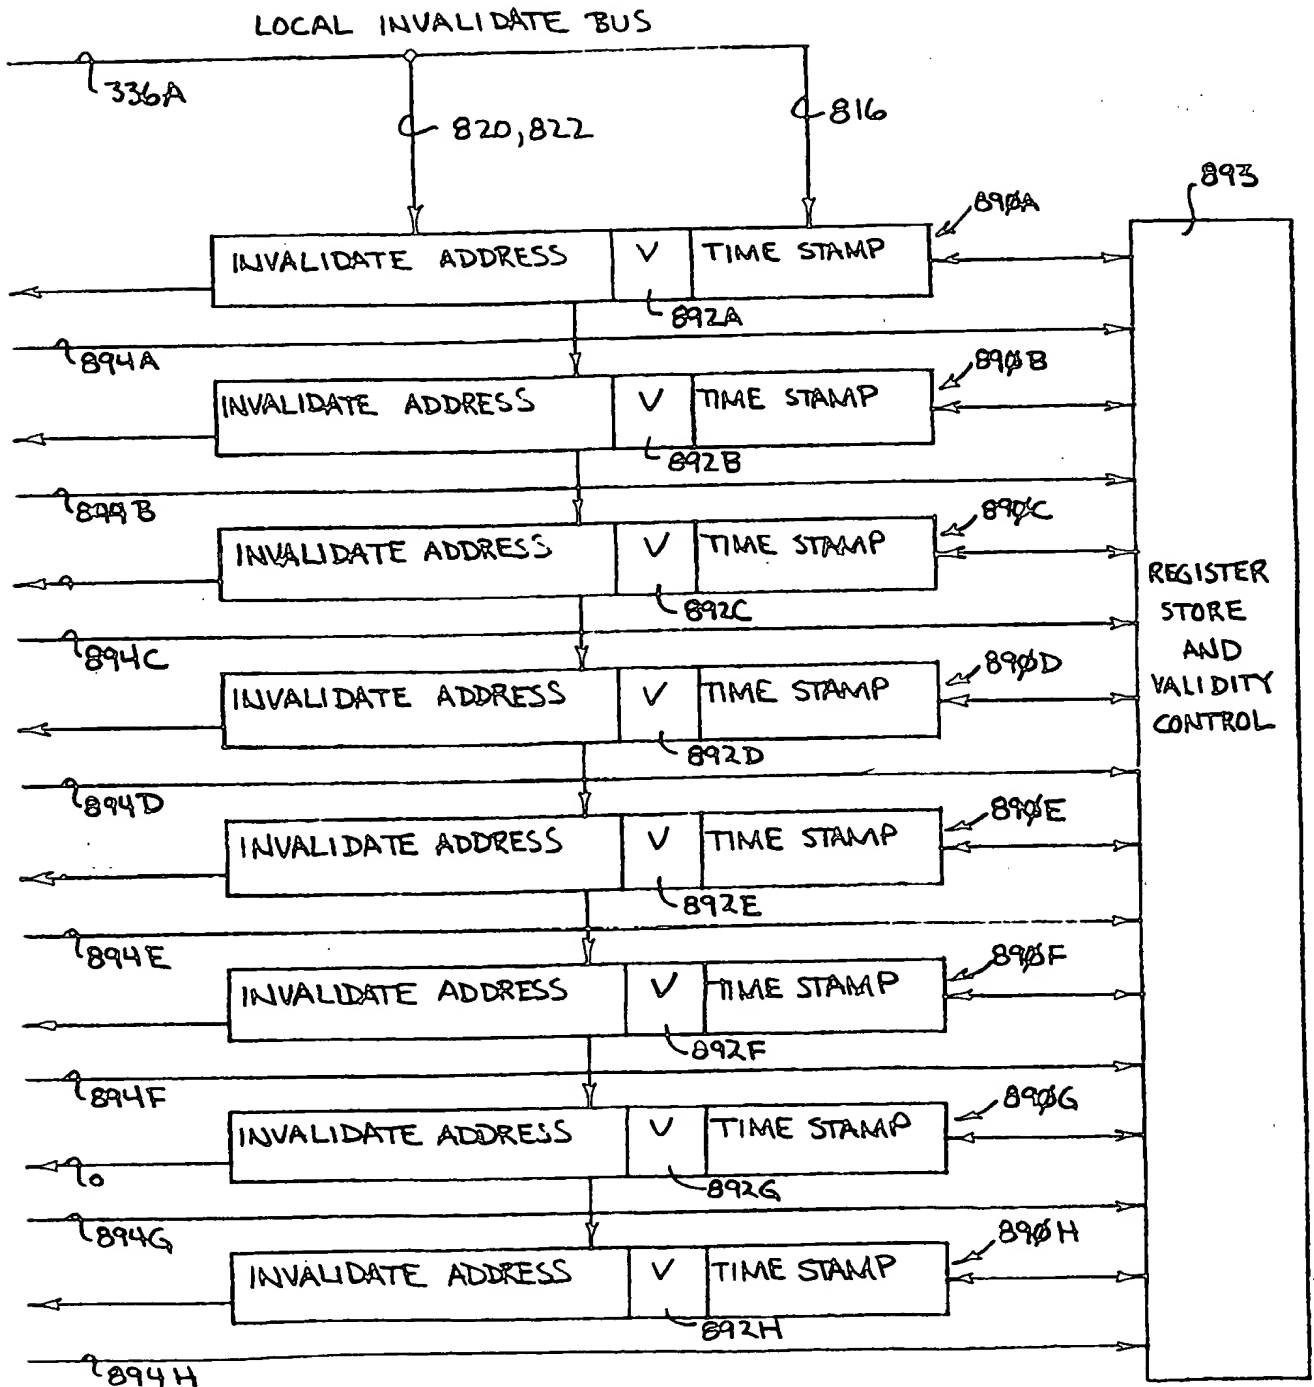 LOCAL INVALIDATE BUS
336A
820,822
816
893
890A
INVALIDATE ADDRESS V TIME STAMP
892A
894A
890B
INVALIDATE ADDRESS V TIME STAMP
892B
894B
890C
INVALIDATE ADDRESS V TIME STAMP
892C
894C
890D
INVALIDATE ADDRESS V TIME STAMP
892D
894D
890E
INVALIDATE ADDRESS V TIME STAMP
892E
894E
890F
INVALIDATE ADDRESS V TIME STAMP
892F
894F
890G
INVALIDATE ADDRESS V TIME STAMP
892G
894G
890H
INVALIDATE ADDRESS V TIME STAMP
892H
894H
REGISTER
STORE
AND
VALIDITY
CONTROL